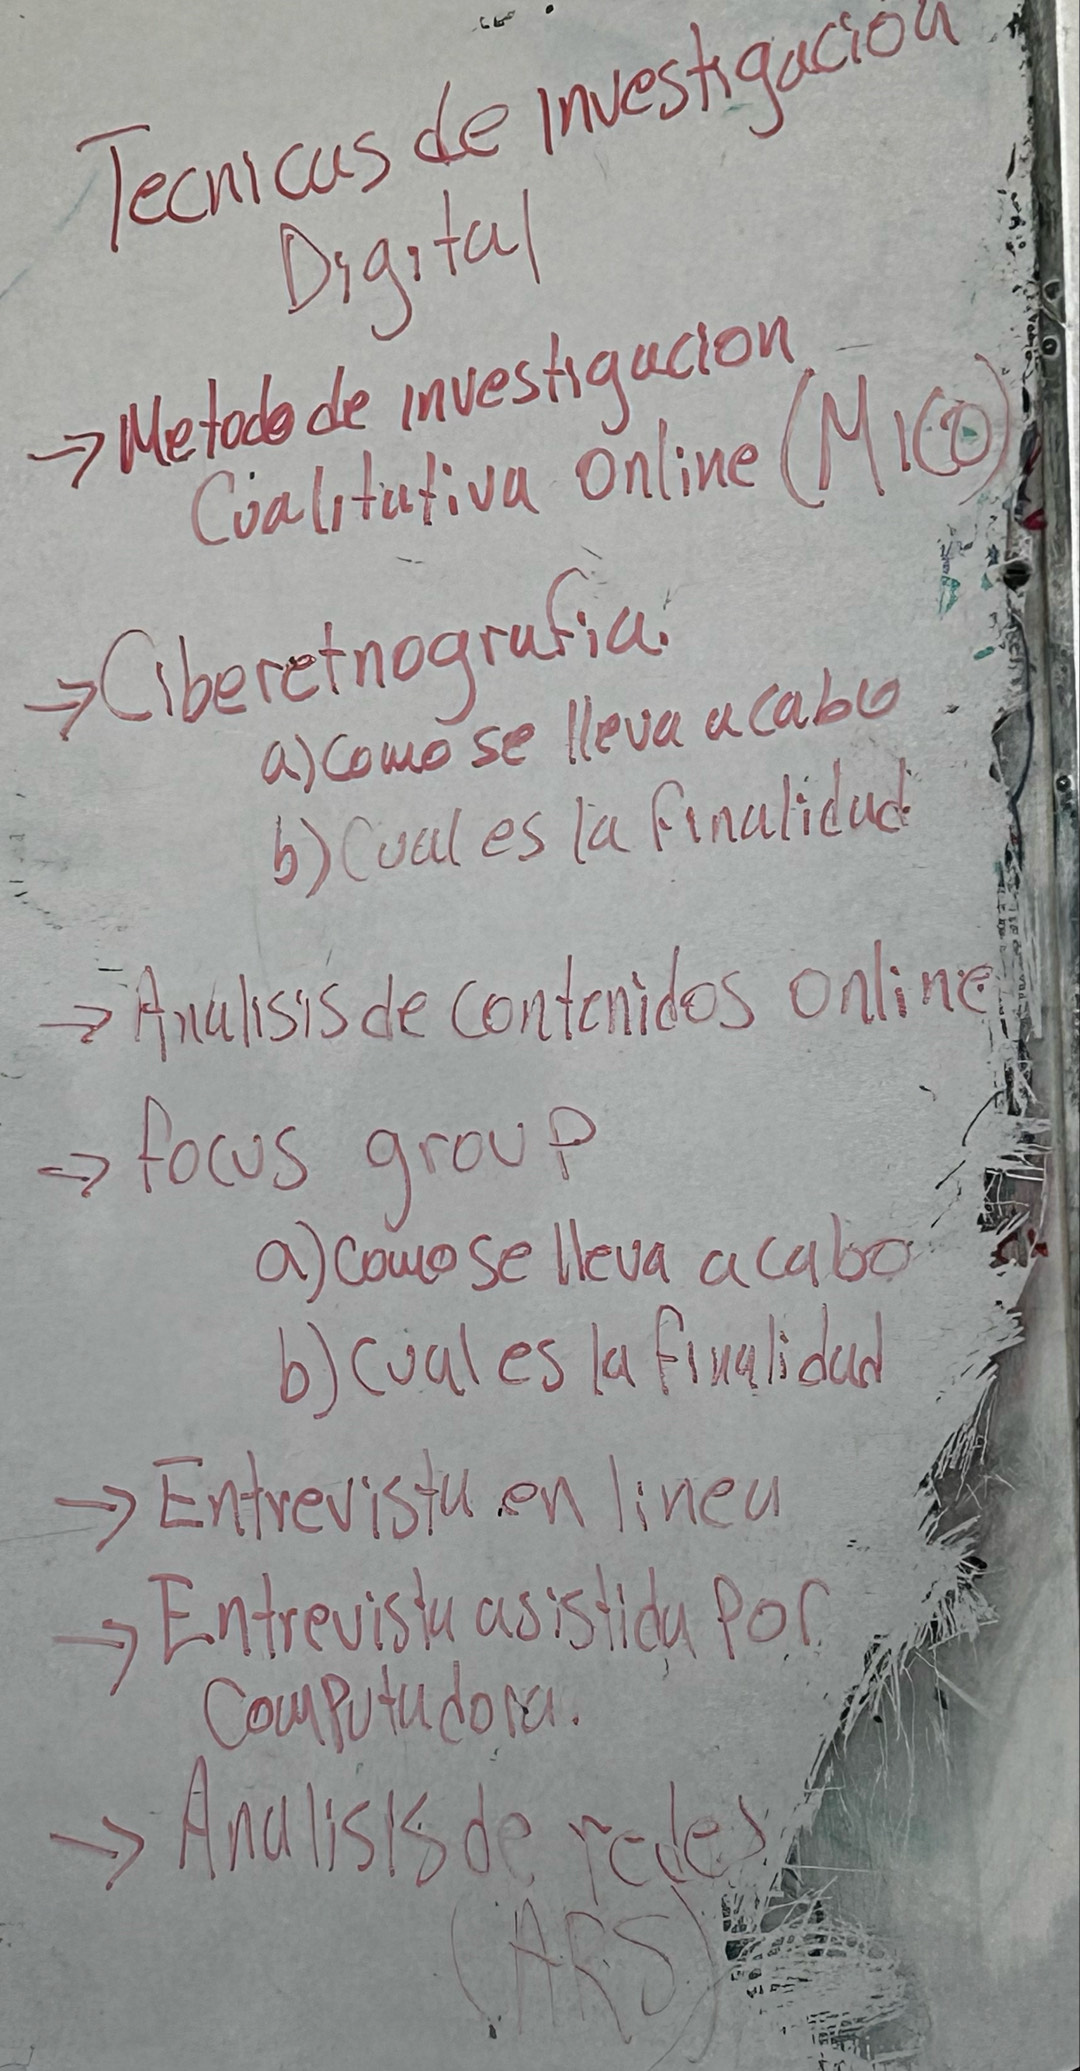 Tecnicas de investigación
Digital
→ Metodo de investigacion
Cualitativa online (MICO)
→ Ciberetnografia.
a) como se lleva a cabo
b) Cual es la finalidad
→ Analisis de contenidos online
→ focus group
a) como se lleva a cabo
b) cual es la finalidad
→ Entrevista en linea
→ Entrevista asistida por
Computadora.
→ Analisis de redes
(ARS)